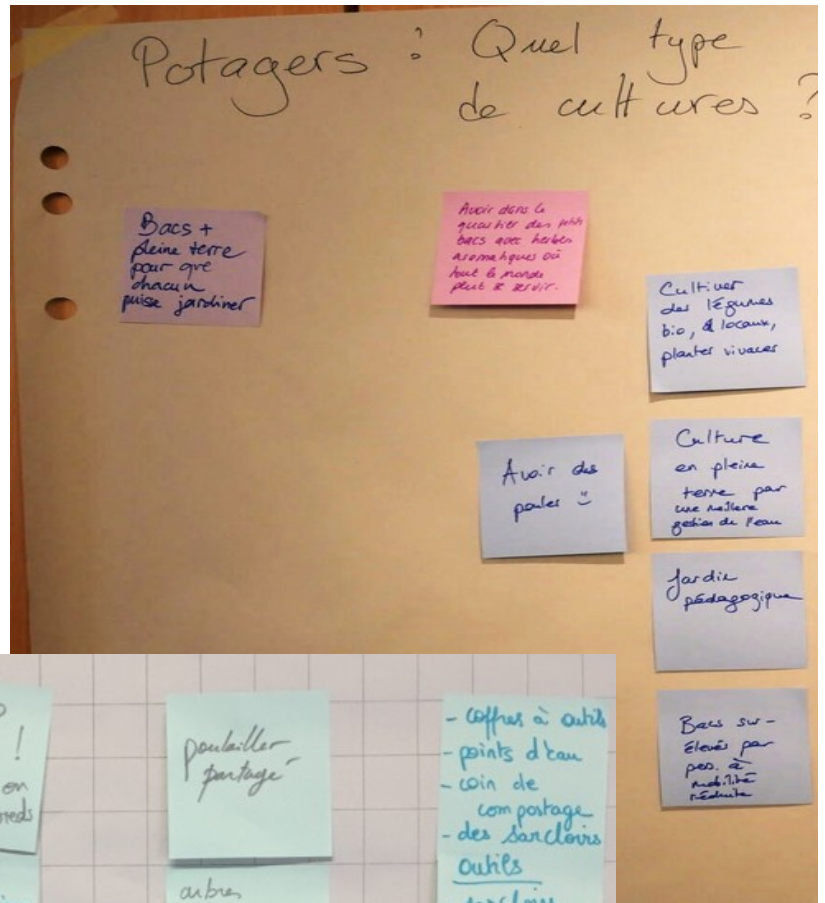 Potagers : Quel type
de cultures ?
Bacs +
pleine terre
pour que
chacun
puise jardiner
Avoir dans le
quartier des petits
bacs avec herbes
aromatiques où
tout le monde
peut se servir.
Cultiver
des légumes
bio, & locaux,
planter vivaces
Avoir des
poules :)
Culture
en pleine
terre par
une meillere
gestion de l'eau
Jardin
pédagogique
Bacs sur-
élevés par
pes. à
mobilité
réduite
!
en
poulailler
partagé
- coffres à outils
- points d'eau
- coin de
compostage
- des sarcloirs
outils
arbres